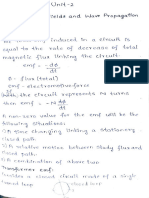 Unit-2
Fields and Wave Propagation
induced in a circuit is
equal to the rate of decrease of total
magnetic flux linking the circuit.
emf = -dϕ/dt
- flux (total)
emf - electromotive force
the circuit represents N turns
then emf = -N dϕ/dt
A non zero value for the emf will be the
following situations:
1) A time changing linking a stationary
closed path.
2) A relative motion between steady flux and
closed path.
3) A combination of above two
Transformer emf:
Consider a closed circuit made of a single
closed loop
closed loop